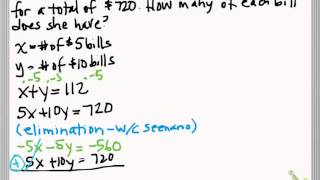 for a total of $720. How many of each bill
does she have?
x = # of $5 bills
y = # of $10 bills
·-5 ·-5 ·-5
x+y = 112
5x+10y = 720
(elimination-w/c scenario)
-5x-5y = -560
+ 5x+10y = 720